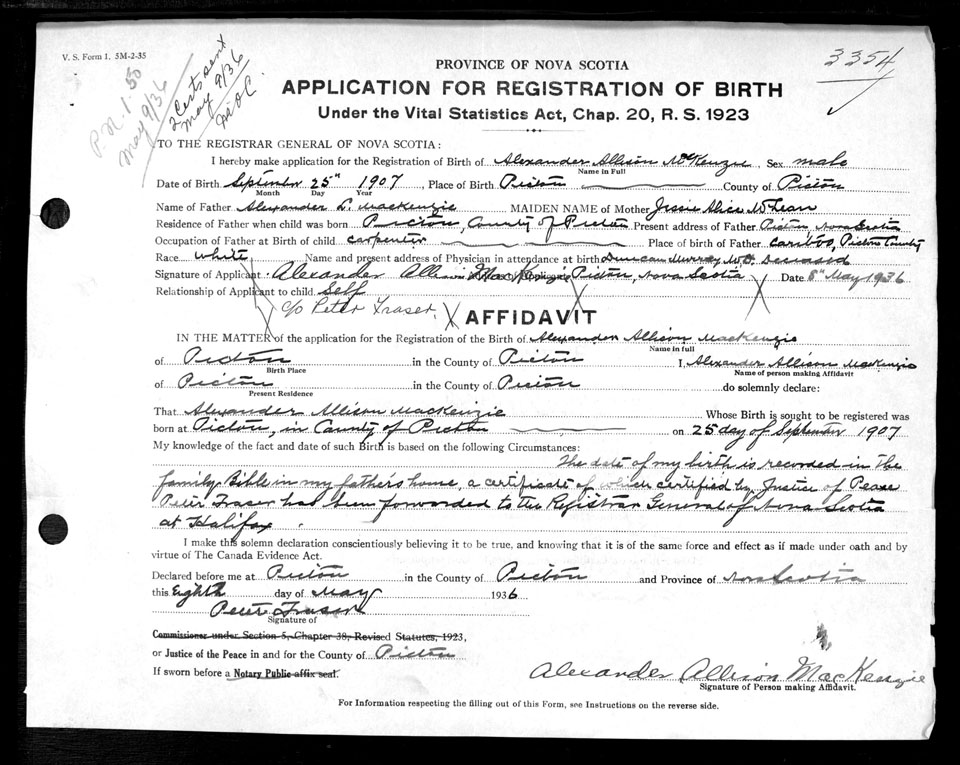 V. S. Form 1. 5M-2-35
P.N. 1.50
May 9/36
2 Certs sent
May 9/36
3354
PROVINCE OF NOVA SCOTIA
APPLICATION FOR REGISTRATION OF BIRTH
Under the Vital Statistics Act, Chap. 20, R. S. 1923
TO THE REGISTRAR GENERAL OF NOVA SCOTIA:
I hereby make application for the Registration of Birth of Alexander Allison McKenzie, Sex male
Name in Full
Date of Birth September 25th 1907, Place of Birth Pictou County of Pictou
Month Day Year
Name of Father Alexander L. MacKenzie MAIDEN NAME of Mother Jessie Alice McLean
Residence of Father when child was born Pictou, County of Pictou Present address of Father Pictou, Nova Scotia
Occupation of Father at Birth of child carpenter Place of birth of Father Cariboo, Pictou County
Race white Name and present address of Physician in attendance at birth Duncan Murray M.D. Deceased
Signature of Applicant Alexander Allison MacKenzie Pictou, Nova Scotia Date 8th May 1936
Relationship of Applicant to child Self
c/o Peter Fraser,
AFFIDAVIT
IN THE MATTER of the application for the Registration of the Birth of Alexander Allison MacKenzie
Name in full
of Pictou in the County of Pictou I, Alexander Allison MacKenzie
Birth Place Name of person making Affidavit
of Pictou in the County of Pictou do solemnly declare:
Present Residence
That Alexander Allison MacKenzie Whose Birth is sought to be registered was
born at Pictou, in County of Pictou on 25 day of September 1907
My knowledge of the fact and date of such Birth is based on the following Circumstances:
The date of my birth is recorded in the
family Bible in my father's home, a certificate of which certified by Justice of Peace
Peter Fraser has been forwarded to the Registrar General of Nova Scotia
at Halifax.
I make this solemn declaration conscientiously believing it to be true, and knowing that it is of the same force and effect as if made under oath and by
virtue of The Canada Evidence Act.
Declared before me at Pictou in the County of Pictou and Province of Nova Scotia
this Eighth day of May 1936
Peter Fraser
Signature of
Commissioner under Section 5, Chapter 38, Revised Statutes, 1923,
or Justice of the Peace in and for the County of Pictou
If sworn before a Notary Public affix seal.
Alexander Allison MacKenzie
Signature of Person making Affidavit.
For Information respecting the filling out of this Form, see Instructions on the reverse side.